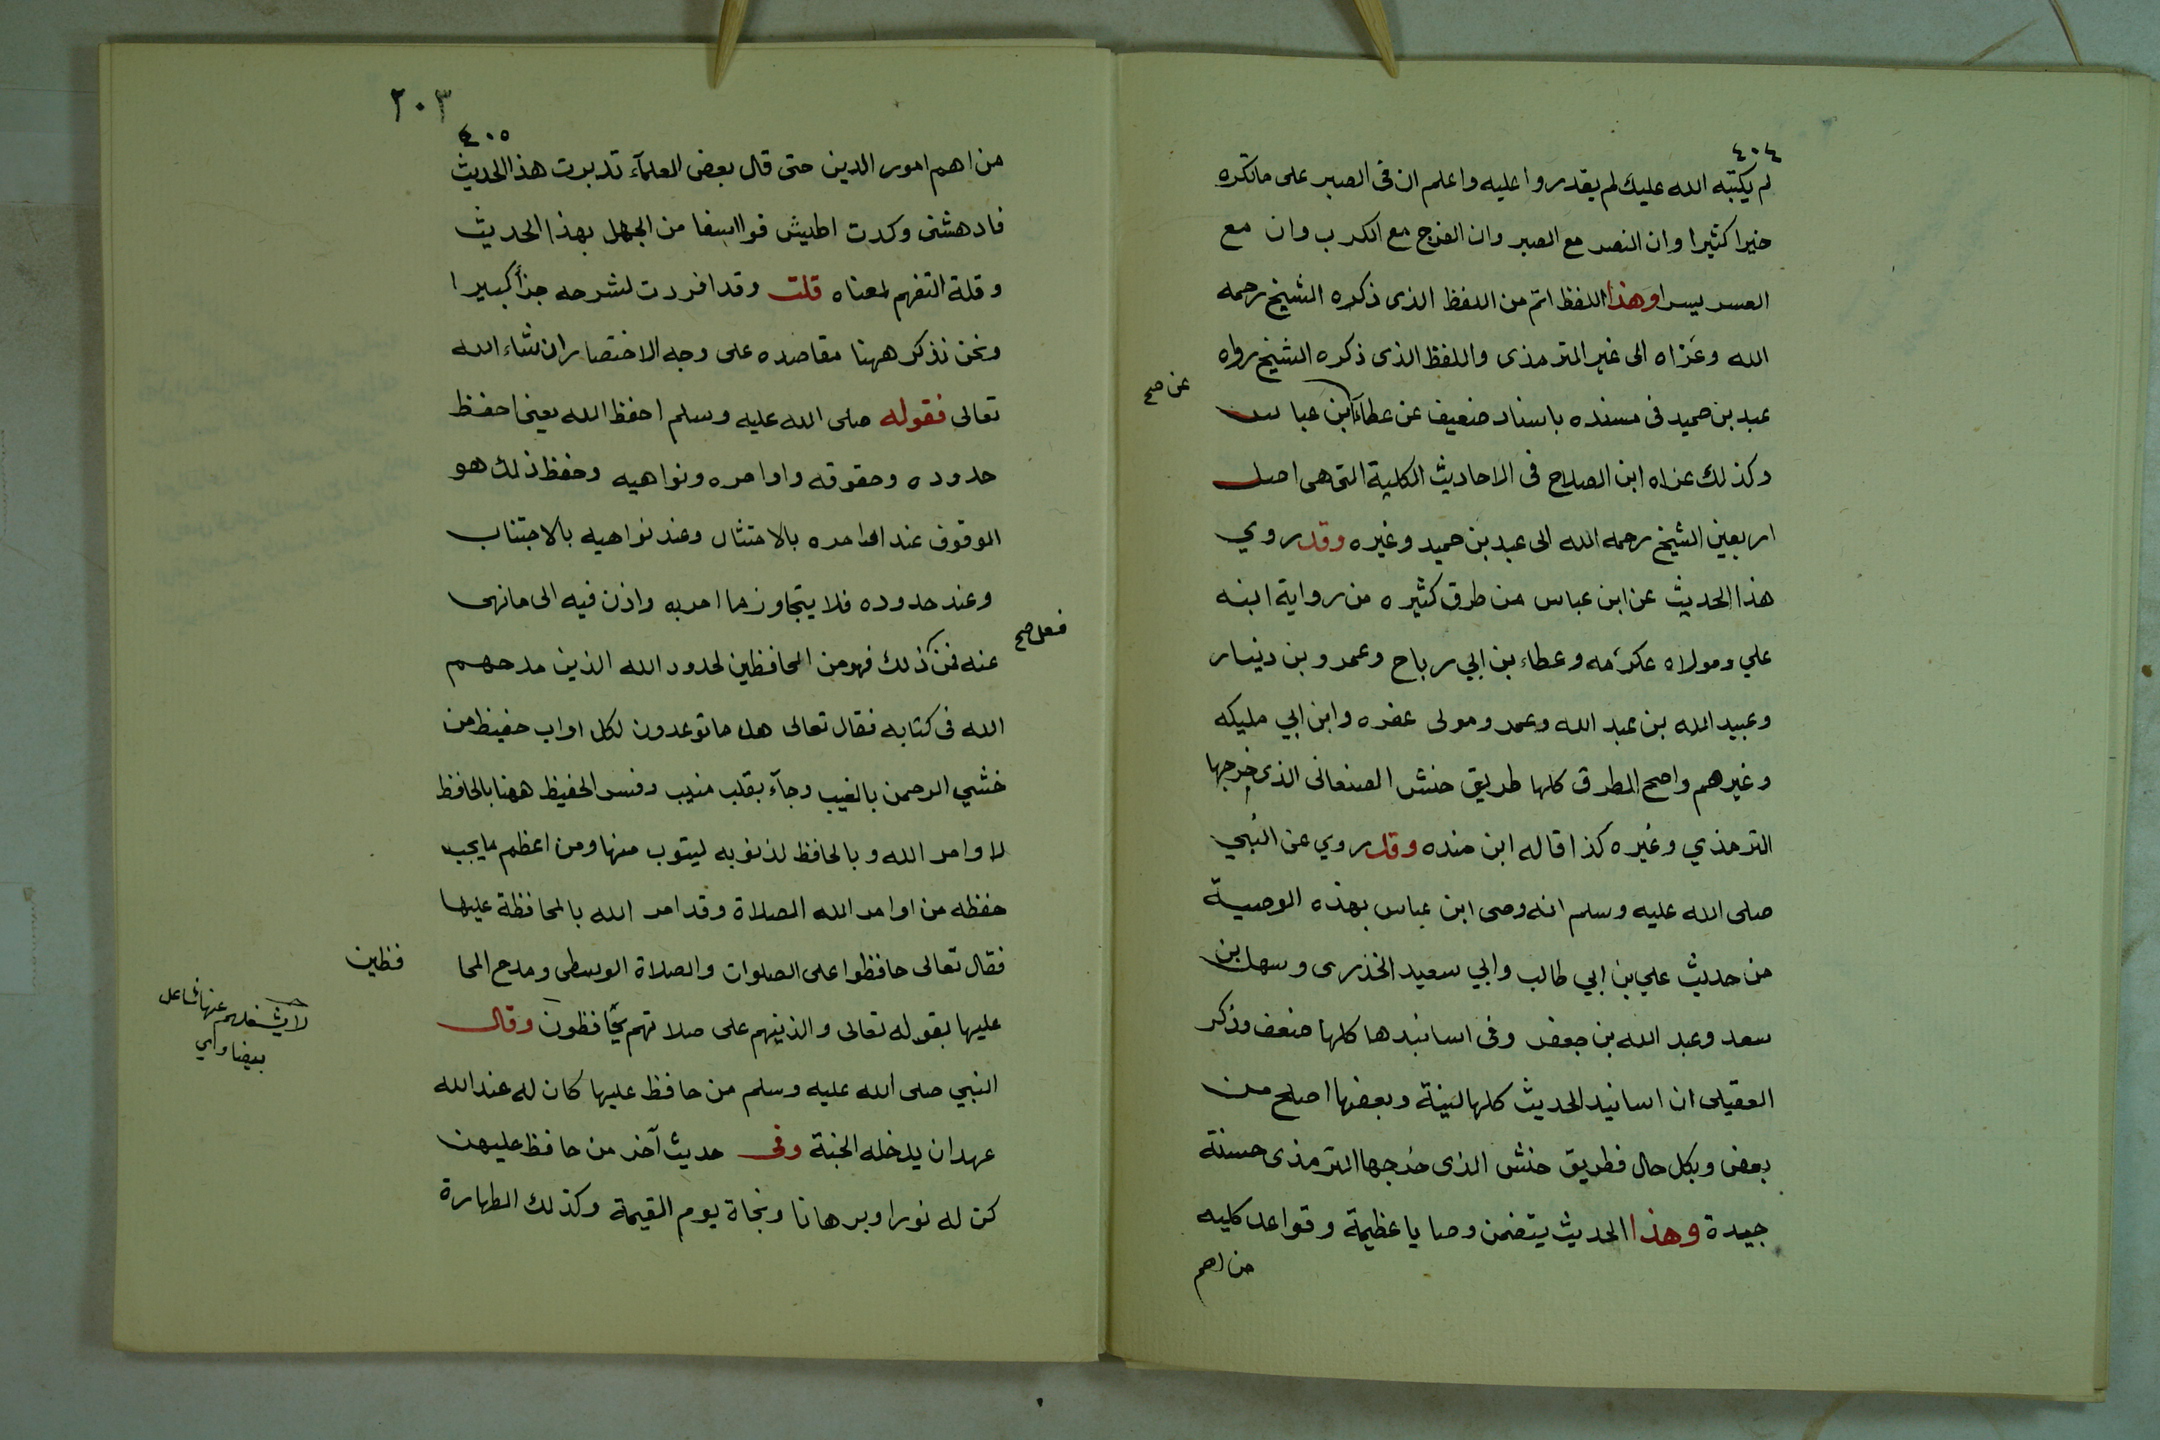 ٤٠٤
لم يكتبه الله عليك لم يقدروا عليه واعلم ان فى الصبر على ماتكره
خيرا كثيرا وان النصر مع الصبر وان الفرج مع الكرب وان مع
العسر يسرا وهذا اللفظ اتم من اللفظ الذى ذكره الشيخ رحمه
الله وعزاه الى غير الترمذى واللفظ الذى ذكره الشيخ رواه
عبد بن حميد فى مسنده باسناد ضعيف عن عطاء ابن عباس
عن صح
وكذلك عزاه ابن الصلاح فى الاحاديث الكلية التى هى اصل
اربعين الشيخ رحمه الله الى عبد بن حميد وغيره وقد روي
هذا الحديث عن ابن عباس من طرق كثيره من رواية ابنه
علي ومولاه عكرمه وعطاء بن ابي رباح وعمرو بن دينار
وعبيد الله بن عبد الله وعمر ومولى غفره وابن ابي مليكه
وغيرهم واصح الطرق كلها طريق حنش الصنعانى الذى خرجها
الترمذي وغيره كذا قاله ابن منده وقد روي عن النبي
صلى الله عليه وسلم انه وصى ابن عباس بهذه الوصية
من حديث علي بن ابي طالب وابي سعيد الخذرى وسهل بن
سعد وعبد الله بن جعفر وفى اسانيدها كلها ضعف وذكر
العقيلى ان اسانيد الحديث كلها لينة وبعضها اصلح من
بعض وبكل حال فطريق حنش الذى خرجها الترمذى حسنة
جيدة وهذا الحديث يتضمن وصايا عظيمة وقواعد كليه
من اهم
٢٠٣
٤٠٥
من اهم امور الدين حتى قال بعض العلمآء تدبرت هذا الحديث
فادهشنى وكدت اطيش فوااسفا من الجهل بهذا الحديث
وقلة التفهم لمعناه قلت وقد افردت لشرحه جزأ كبيرا
ونحن نذكر ههنا مقاصده على وجه الاختصار ان شاء الله
تعالى فقوله صلى الله عليه وسلم احفظ الله يعنى احفظ
حدوده وحقوقه واوامره ونواهيه وحفظ ذلك هو
الوقوف عند اوامره بالامتثال وعند نواهيه بالاجتناب
وعند حدوده فلا يتجاوز ما امر به واذن فيه الى ما نهى
فعل صح
عنه فمن ذلك فهو من المحافظين لحدود الله الذين مدحهم
الله فى كتابه فقال تعالى هذا ما توعدون لكل اواب حفيظ من
خشي الرحمن بالغيب وجآء بقلب منيب وفسر الحفيظ ههنا بالحافظ
لاوامر الله وبالحافظ لذنوبه ليتوب منها ومن اعظم ما يجب
حفظه من اوامر الله الصلاة وقد امر الله بالمحافظة عليها
فقال تعالى حافظوا على الصلوات والصلاة الوسطى ومدح المحا
فظين
عليها بقوله تعالى والذينهم على صلاتهم يحافظون وقال
لا يشغلهم عنها شاغل
بيضاوي
النبي صلى الله عليه وسلم من حافظ عليها كان له عند الله
عهد ان يدخله الجنة وفى حديث آخر من حافظ عليهن
كن له نورا وبرهانا ونجاة يوم القيمة وكذلك الطهارة